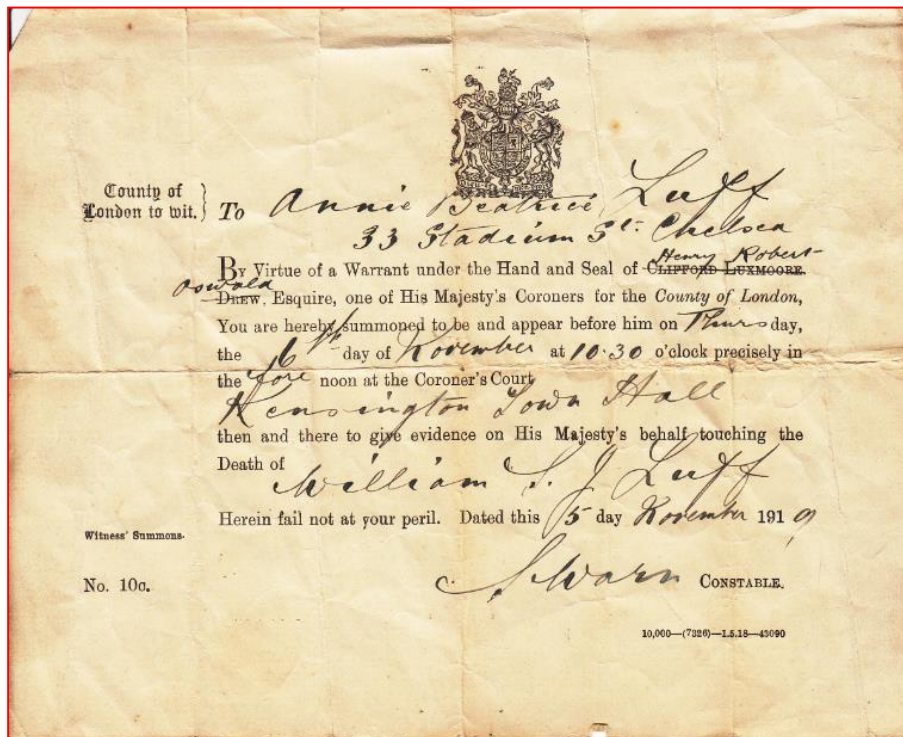 County of
London to wit. }
To Annie Beatrice Luff
33 Stadium St. Chelsea
By Virtue of a Warrant under the Hand and Seal of CLIFFORD LUXMOORE Henry Robert
DREW, Oswald Esquire, one of His Majesty's Coroners for the County of London,
You are hereby summoned to be and appear before him on Thursday,
the 6th day of November at 10.30 o'clock precisely in
the fore noon at the Coroner's Court
Kensington Town Hall
then and there to give evidence on His Majesty's behalf touching the
Death of
William S. J Luff
Herein fail not at your peril. Dated this 5 day November 1919
Witness' Summons.
No. 10c.
CONSTABLE.
10,000—(7326)—1.5.18—43090